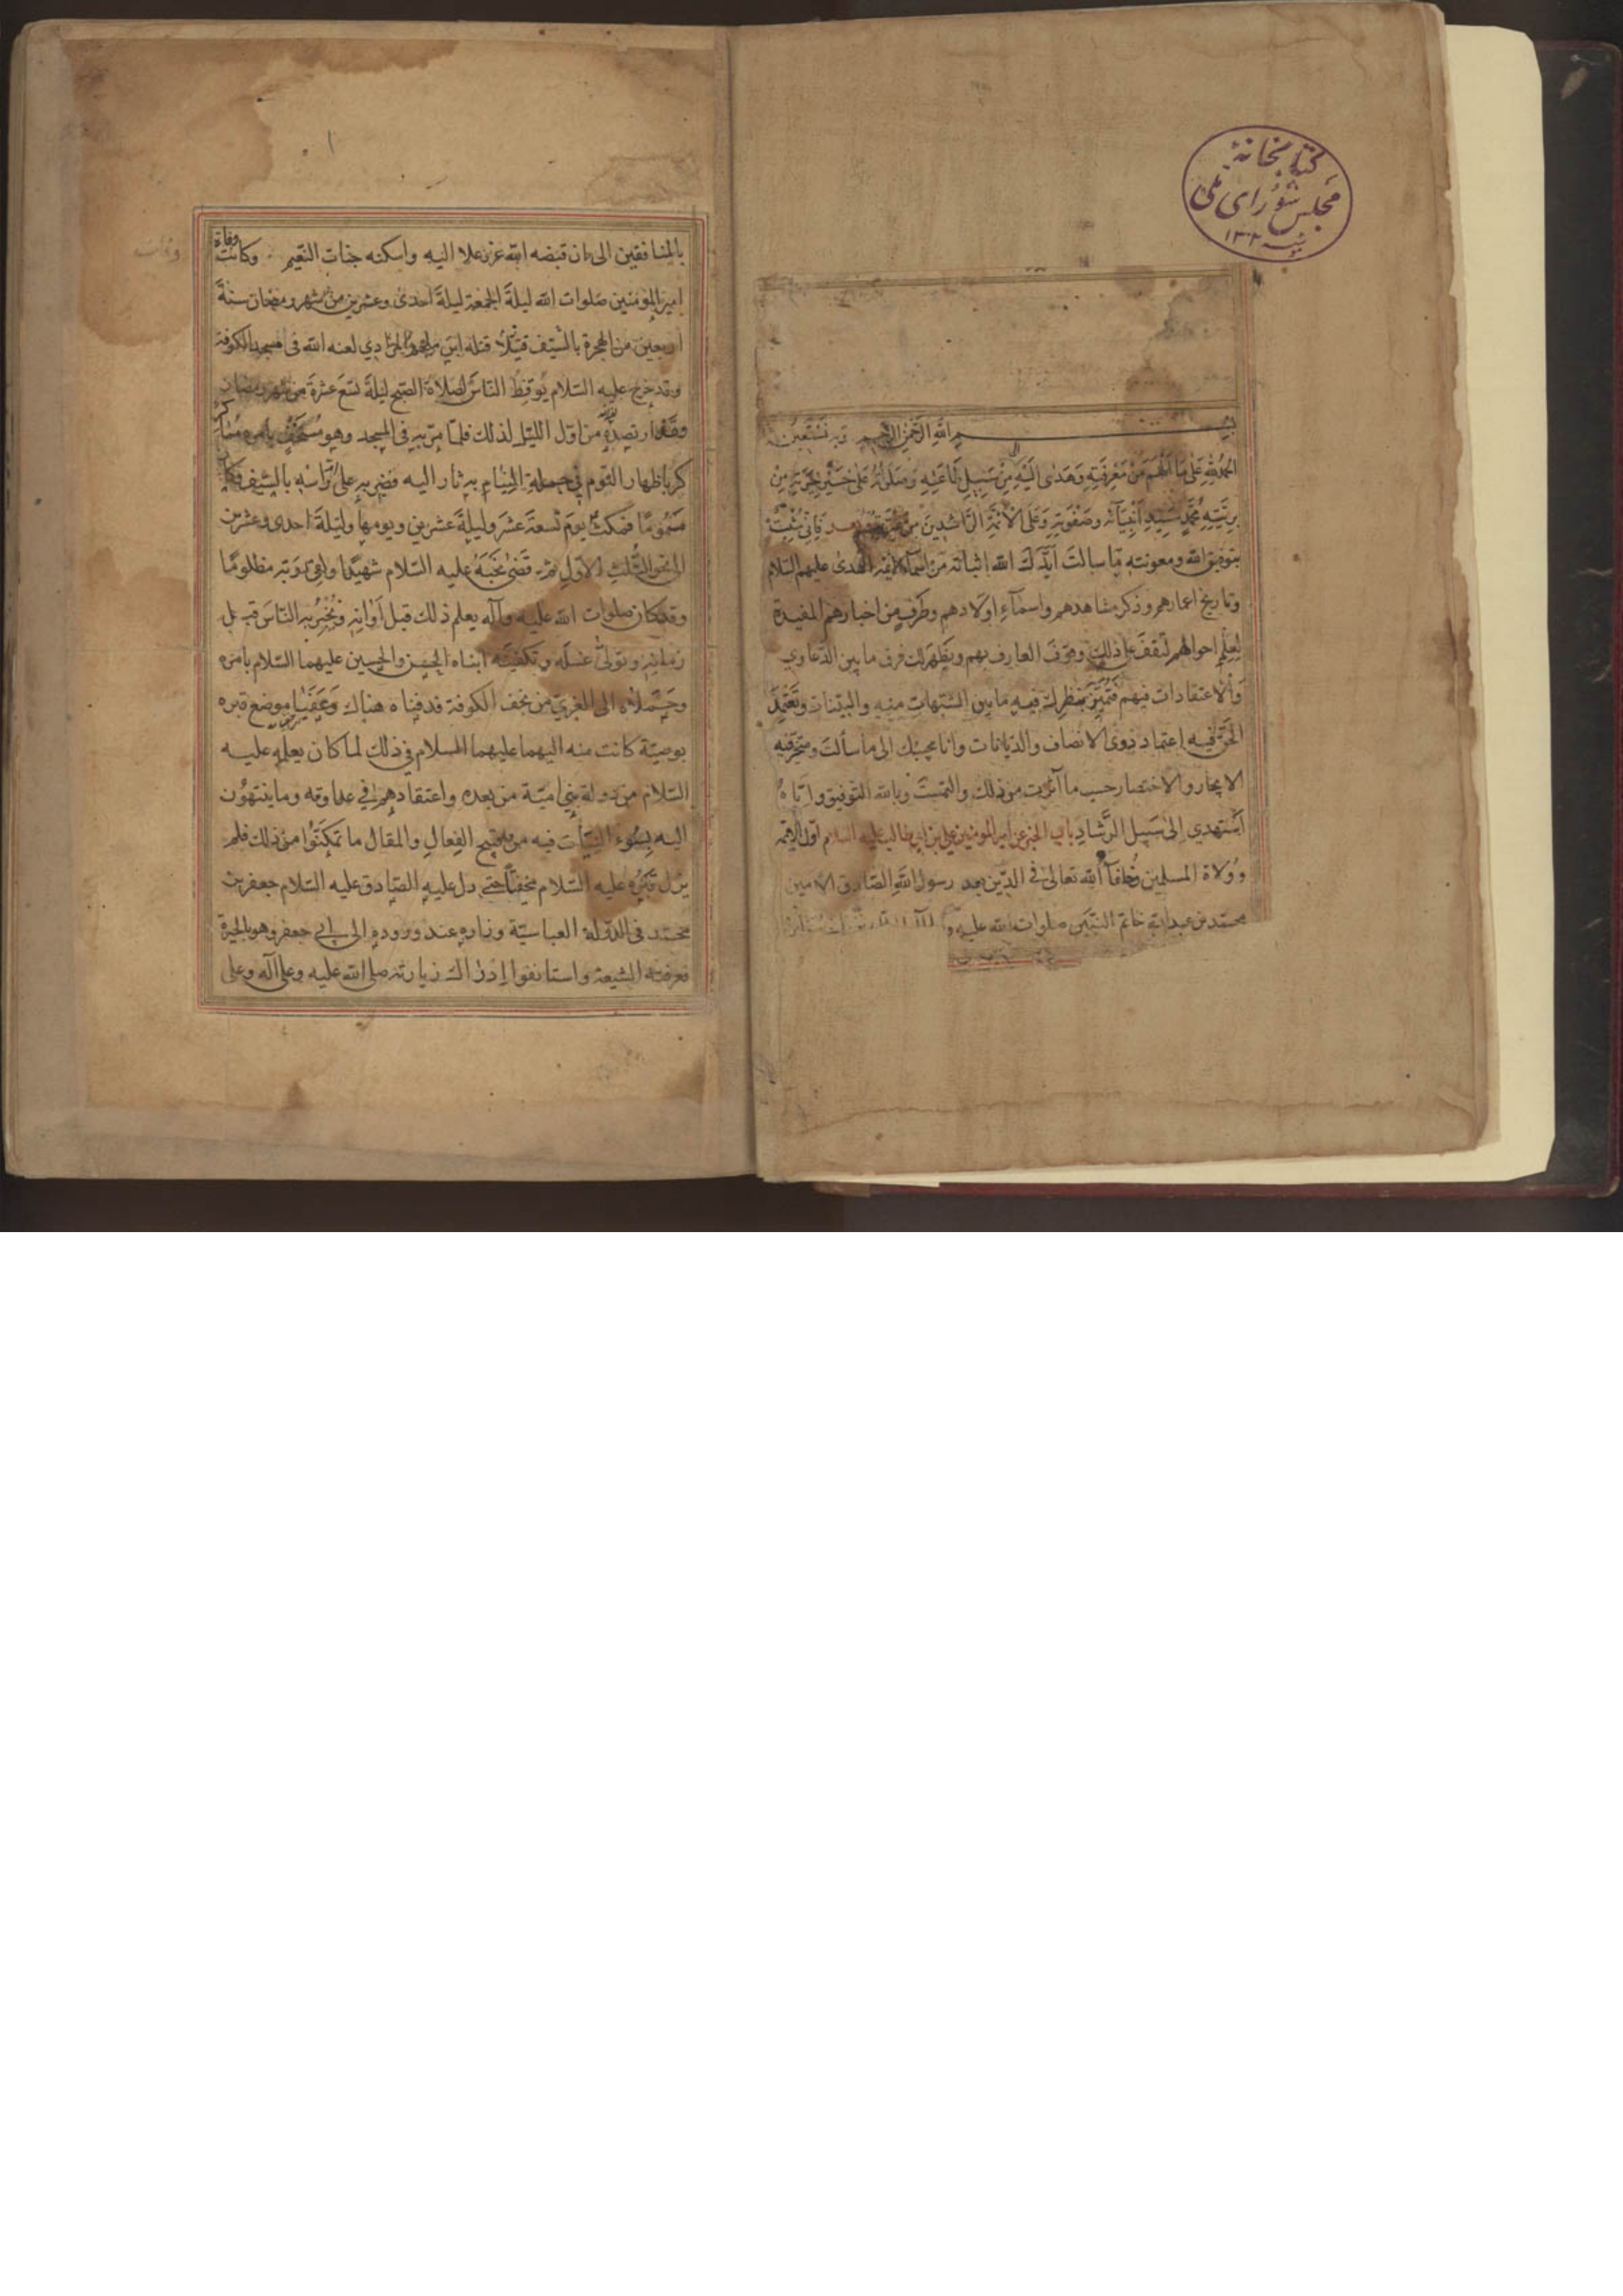 كتابخانهٔ
مجلس شورای ملی
١٣٠٢
بسم الله الرحمن الرحيم وبه نستعين
الحمد لله على ما الهم من معرفته وهدى اليه من سبيل طاعته وصلوته على خيرته من
بريته محمد سيد أنبيائه وصفوته وعلى الأئمة الراشدين من فاني مثبت
بتوفيق الله ومعونته ما سالت ايدك الله اثباته من اسماء ائمة الهدى عليهم السلام
وتاريخ اعمارهم وذكر مشاهدهم واسماء اولادهم وطرف من اخبارهم المفيدة
لعلم احوالهم لتقف على ذلك وقوف العارف بهم ويظهر لك فرق ما بين الدعاوي
والاعتقادات فيهم فتميز بنظرك فيه ما بين الشبهات منه والبينات وتعتمد
الحق فيه اعتماد ذوى الانصاف والديانات وانا مجيبك الى ما سألت ومتحر فيه
الايجاز والاختصار حسب ما آثرت من ذلك والتمست وبالله التوفيق واياه
أستهدي إلى سبيل الرشاد باب الخبر عن امير المومنين علي بن ابي طالب عليه السلام اول الائمة
وولاة المسلمين وخلفاء الله تعالى في الدين بعد رسول الله الصادق الامين
محمد بن عبد الله خاتم النبيين صلوات الله عليه
١
وفات
بالمنافقين الى ان قبضه الله عز وعلا اليه واسكنه جنات النعيم وكانت وفاة
امير المؤمنين صلوات الله ليلة الجمعة ليلة احدى وعشرين من شهر رمضان سنة
اربعين من الهجرة بالسيف قتيلا قتله ابن ملجم المرادي لعنه الله في مسجد الكوفة
وقد خرج عليه السلام يوقظ الناس لصلاة الصبح ليلة تسع عشرة من شهر رمضان
وقد ارتصده من اول الليل لذلك فلما مر به في المسجد وهو مستخف بامره
كر باظهار النوم في جملة النيام به ثار اليه فضربه على ام راسه بالسيف
مسموما فمكث يوم تسعة عشر وليلة عشرين ويومها وليلة احدى وعشرين
الى نحو الثلث الاول ثم قضى نحبه عليه السلام شهيدا ولقى ربه مظلوما
وقد كان صلوات الله عليه وآله يعلم ذلك قبل أوانه ويخبر به الناس قبل
زمانه وتولى غسله وتكفينه ابناه الحسن والحسين عليهما السلام بامره
وحملاه الى الغري من نجف الكوفة فدفناه هناك وعفيا موضع قبره
بوصية كانت منه اليهما عليهما السلام في ذلك لما كان يعلمه عليه
السلام من دولة بني امية من بعده واعتقادهم في عداوته وما ينتهون
اليه بسوء النيات فيه من قبيح الفعال والمقال ما تمكنوا من ذلك فلم
يزل قبره عليه السلام مخفيا حتى دل عليه الصادق عليه السلام جعفر بن
محمد في الدولة العباسية وزاره عند وروده الى ابي جعفر وهو بالحيرة
فعرفته الشيعة واستانفوا اذ ذاك زيارته صلى الله عليه وعلى آله وعلى